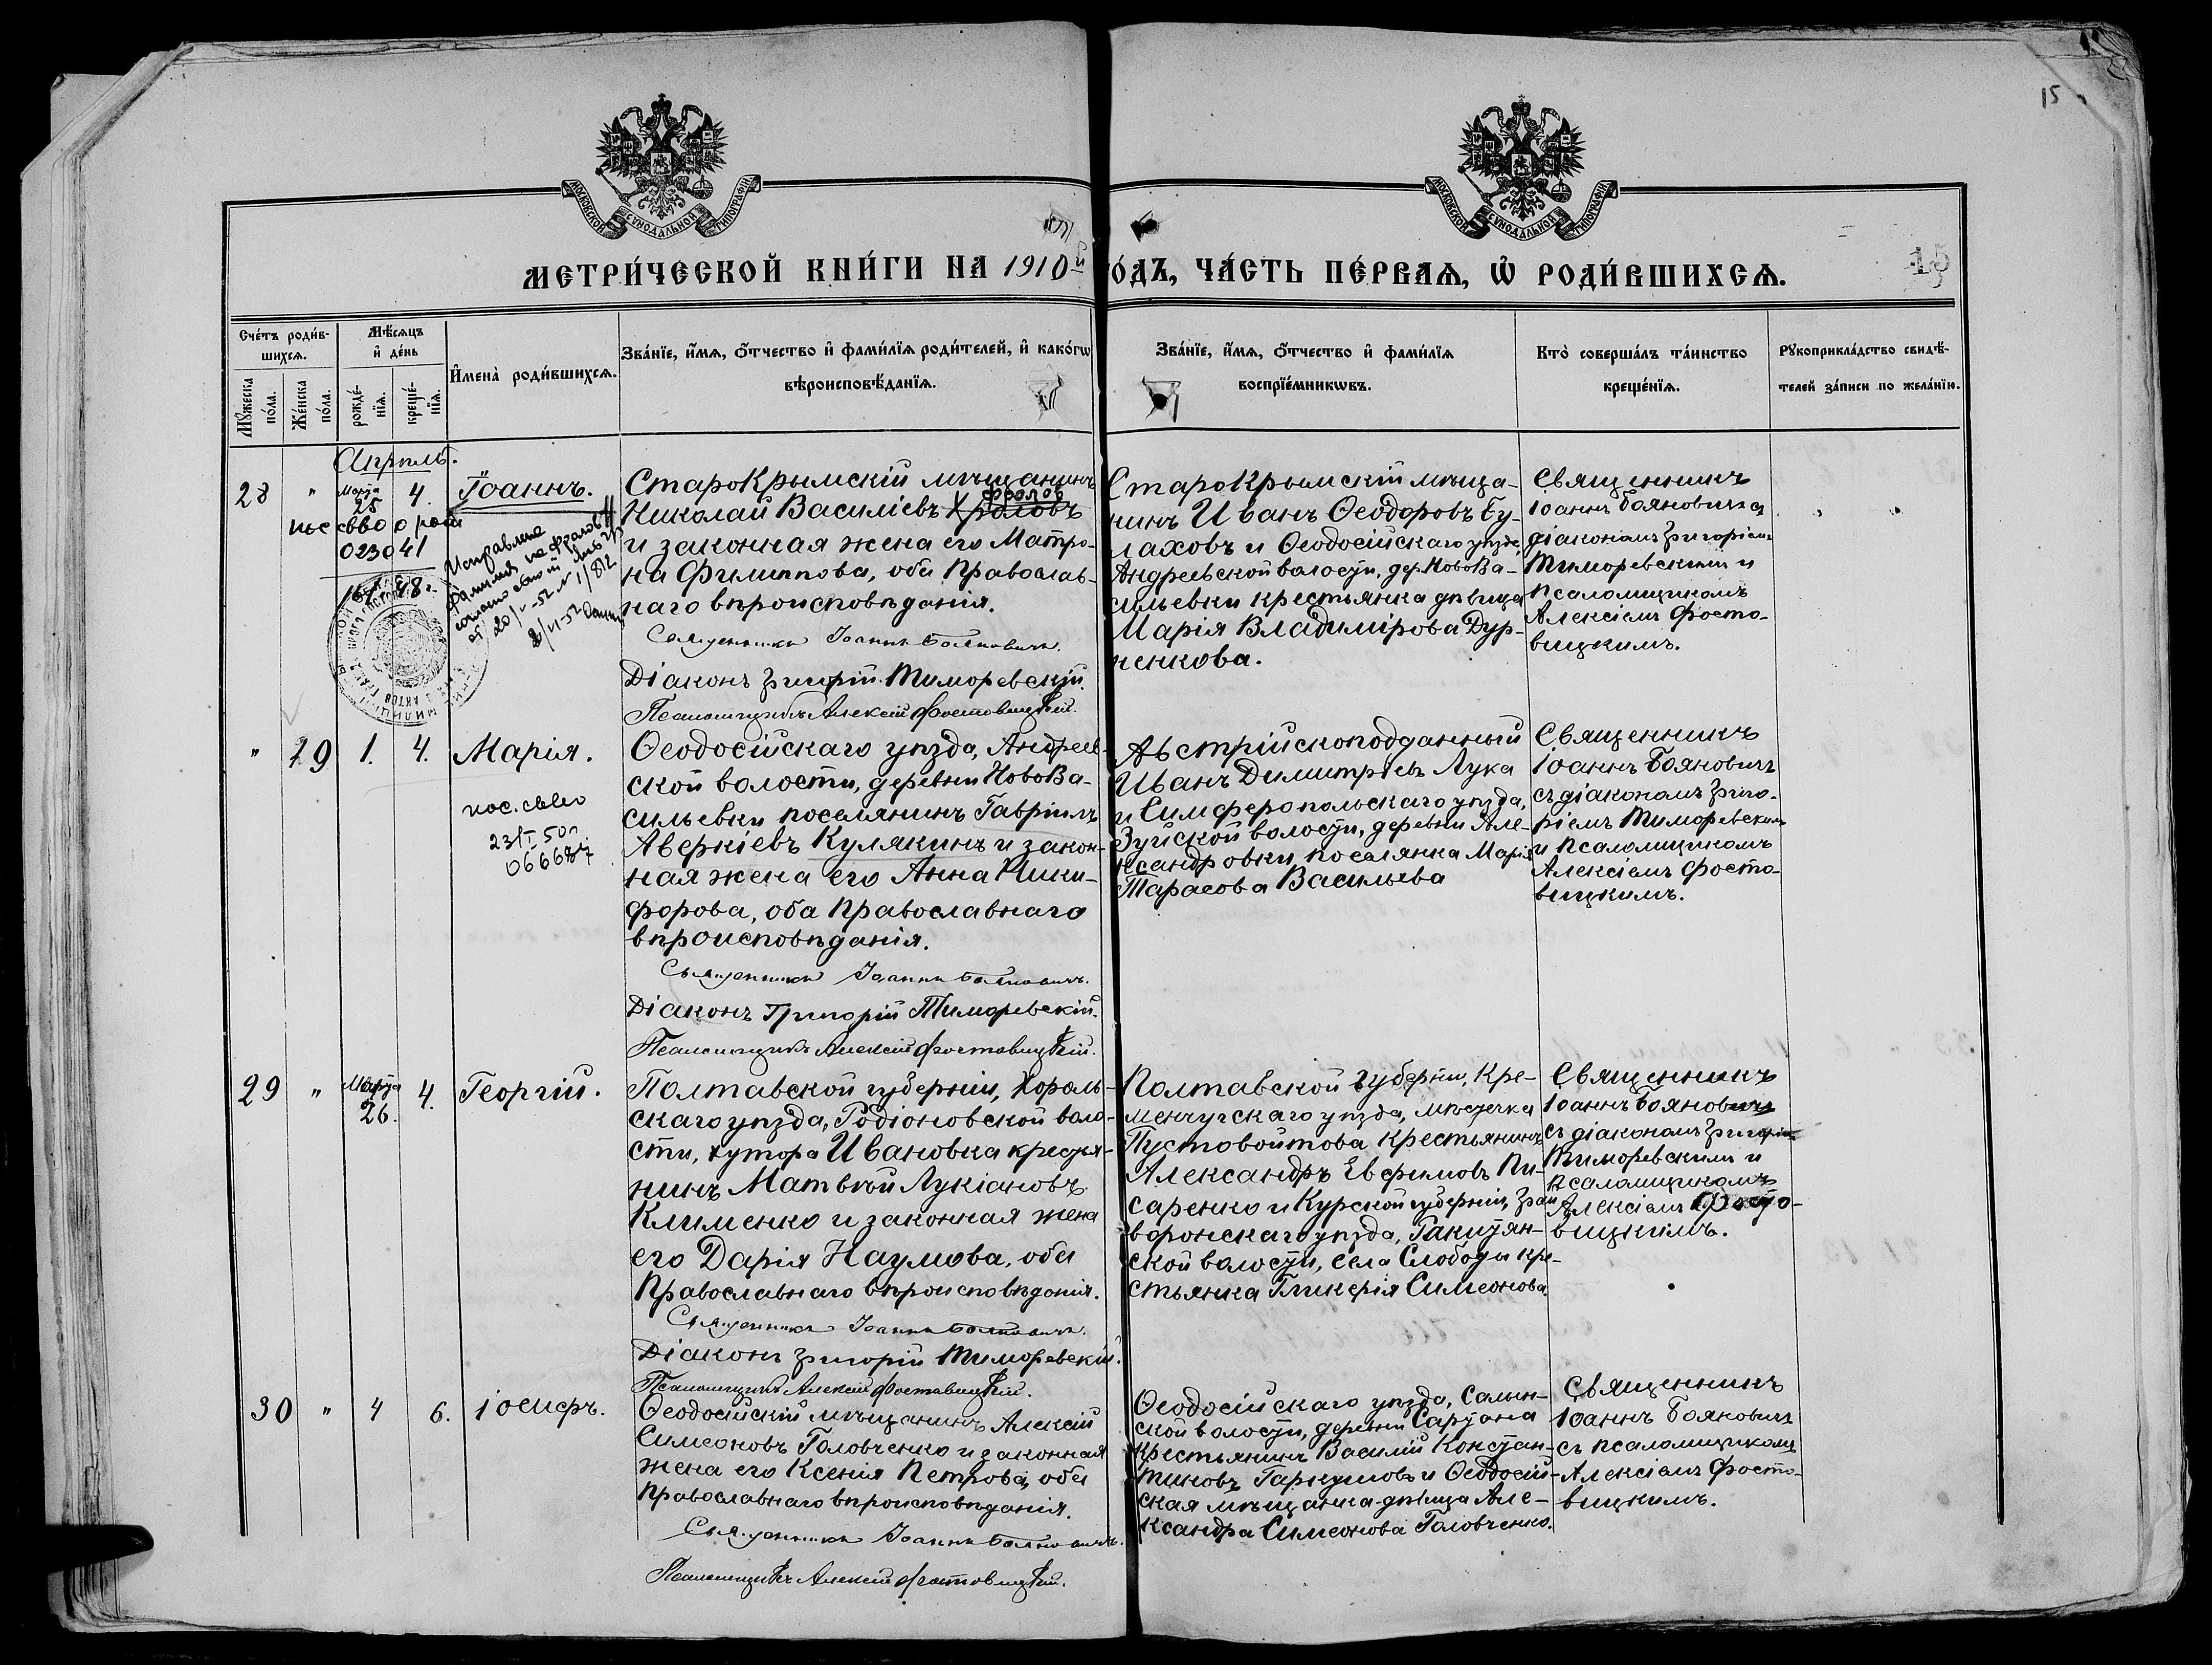 15
МОСКОВСКОЙ СѴНОДАЛЬНОЙ ТИПОГРАФІИ
МОСКОВСКОЙ СѴНОДАЛЬНОЙ ТИПОГРАФІИ
МЕТРИ́ЧЕСКОЙ КНИ́ГИ НА 1910
О́ДЪ, ЧА́СТЬ ПЕ́РВАѦ, Ѡ҆ РОДИ́ВШИХСѦ.
15
Сче́тъ роди́в-
шихсѧ.
Мѣ́сѧцъ
и҆ де́нь
И҆мена̀ роди́вшихсѧ.
Зва́нїе, и҆́мѧ, ѻ҆́тчество и҆ фами́лїѧ роди́телей, и҆ како́гѡ
вѣроисповѣ́данїѧ.
Зва́нїе, и҆́мѧ, ѻ҆́тчество и҆ фами́лїѧ
воспрїе́мникѡвъ.
Кто̀ соверша́лъ та́инство
креще́нїѧ.
Рꙋкоприкла́дство свидѣ́-
телей за́писи по жела́нїю.
Мꙋ́жеска
по́ла.
Же́нска
по́ла.
рожде́-
нїѧ.
креще́-
нїѧ.
Апрѣль.
28 " Марта 25 4. Іоаннъ.
023041
Исправлена
фамилия на Фролов
СтароКрымскій мѣщанинъ
Фролов
Николай Василіевъ Хроловъ
и законная жена его Матро-
на Филиппова, оба Православ-
наго вѣроисповѣданія.
Священникъ Іоаннъ Бояновичъ.
Діаконъ Григорій Тиморевскій.
Псаломщикъ Алексій Фостовицкій.
СтароКрымскій мѣща-
нинъ Иванъ Ѳеодоровъ Бу-
лаховъ и Ѳеодосійскаго уѣзда,
Андреевской волости, дер. НовоВа-
сильевки крестьянка дѣвица
Марія Владимірова Дур-
ненкова.
Священникъ
Іоаннъ Бояновичъ съ
діакономъ Григоріемъ
Тиморевскимъ и
псаломщикомъ
Алексіемъ Фосто-
вицкимъ.
" 19 1. 4. Марія.
066687
Ѳеодосійскаго уѣзда, Андреев-
ской волости, деревни НовоВа-
сильевки поселянинъ Гавріилъ
Аверкіевъ Кулякинъ и закон-
ная жена его Анна Ники-
форова, оба Православнаго
вѣроисповѣданія.
Священникъ Іоаннъ Бояновичъ.
Діаконъ Григорій Тиморевскій.
Псаломщикъ Алексій Фостовицкій.
Австрійскоподданный
Иванъ Димитріевъ Лука
и Симферопольскаго уѣзда,
Зуйской волости, деревни Але-
ксандровки поселянка Марія
Тарасова Васильева
Священникъ
Іоаннъ Бояновичъ
съ діакономъ Григо-
ріемъ Тиморевскимъ
и псаломщикомъ
Алексіемъ Фосто-
вицкимъ.
29 " Марта 26. 4. Георгій.
Полтавской губерніи, Хороль-
скаго уѣзда, Родіоновской воло-
сти, хутора Ивановка крестья-
нинъ Матвѣй Лукіановъ
Клименко и законная жена
его Дарія Наумова, оба
Православнаго вѣроисповѣданія.
Священникъ Іоаннъ Бояновичъ.
Діаконъ Григорій Тиморевскій.
Псаломщикъ Алексій Фостовицкій.
Полтавской губерніи, Кре-
менчугскаго уѣзда, мѣстечка
Пустовойтова крестьянинъ
Александръ Евфимовъ Пи-
саренко и Курской губерніи, Грай-
воронскаго уѣзда, Ракитян-
ской волости, села Слободы кре-
стьянка Гликерія Симеонова
Священникъ
Іоаннъ Бояновичъ
съ діакономъ Григоріемъ
Тиморевскимъ и
псаломщикомъ
Алексіемъ Фосто-
вицкимъ.
30 " 4 6. Іосифъ.
Ѳеодосійскій мѣщанинъ Алексій
Симеоновъ Головченко и законная
жена его Ксенія Петрова, оба
Православнаго вѣроисповѣданія.
Священникъ Іоаннъ Бояновичъ.
Псаломщикъ Алексій Фостовицкій.
Ѳеодосійскаго уѣзда, Салын-
ской волости, деревни Сартана
крестьянинъ Василій Констан-
тиновъ Гаркушовъ и Ѳеодосій-
ская мѣщанка-дѣвица Але-
ксандра Симеонова Головченко.
Священникъ
Іоаннъ Бояновичъ
съ псаломщикомъ
Алексіемъ Фосто-
вицкимъ.